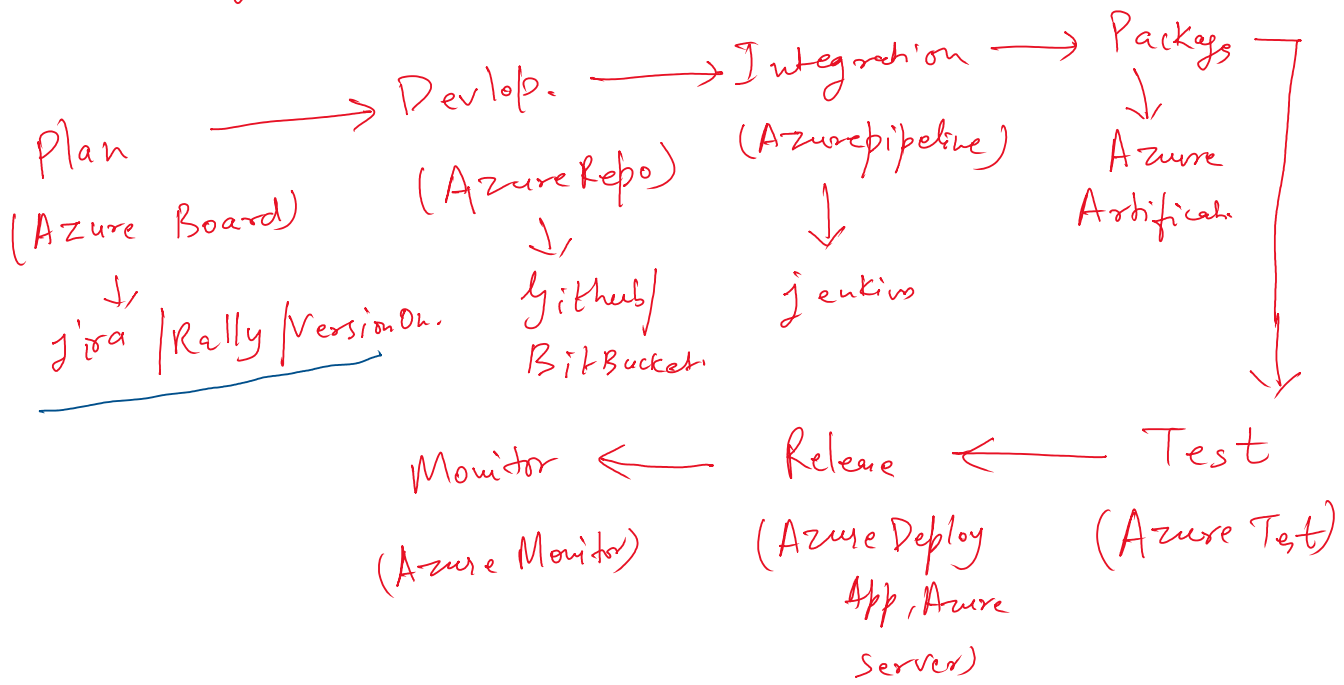 Plan
(Azure Board)
Jira /Rally /VersionOn.
Devlop.
(Azure Repo)
Github/
BitBucket.
Integration
(Azurepipeline)
jenkins
Package
Azure
Artificat.
Test
(Azure Test)
Release
(Azure Deploy
App, Azure
Server)
Monitor
(Azure Monitor)